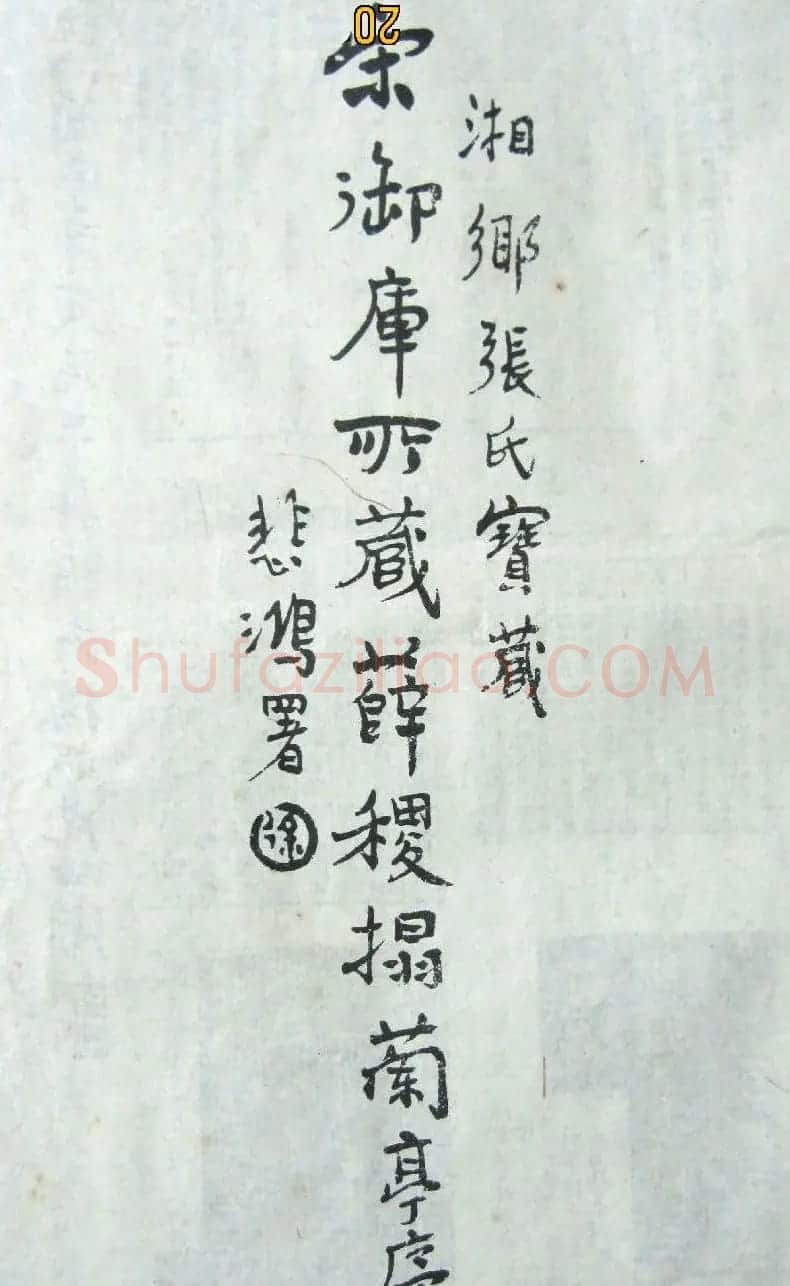 20
湘鄉張氏寶藏
宋御庫所藏薛稷搨蘭亭序
悲鴻署
徐
Shufaziliao.COM